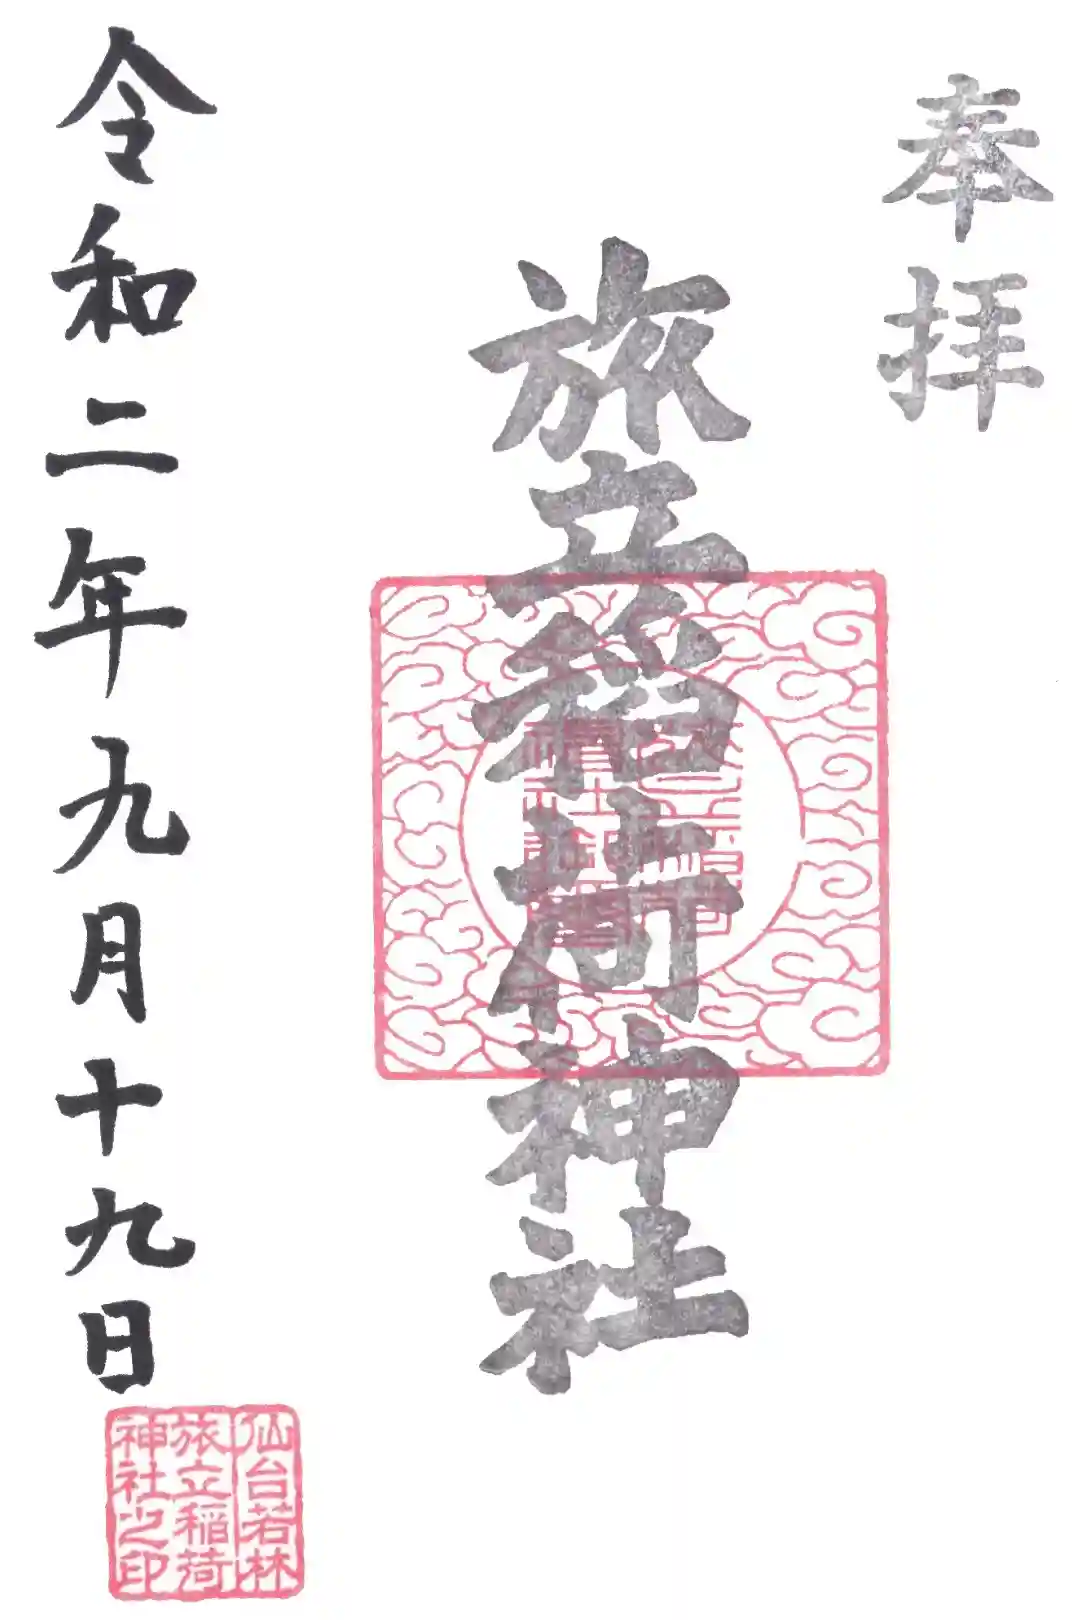 奉拝
旅立稲荷神社
令和二年九月十九日
仙台若林
旅立稲荷
神社之印